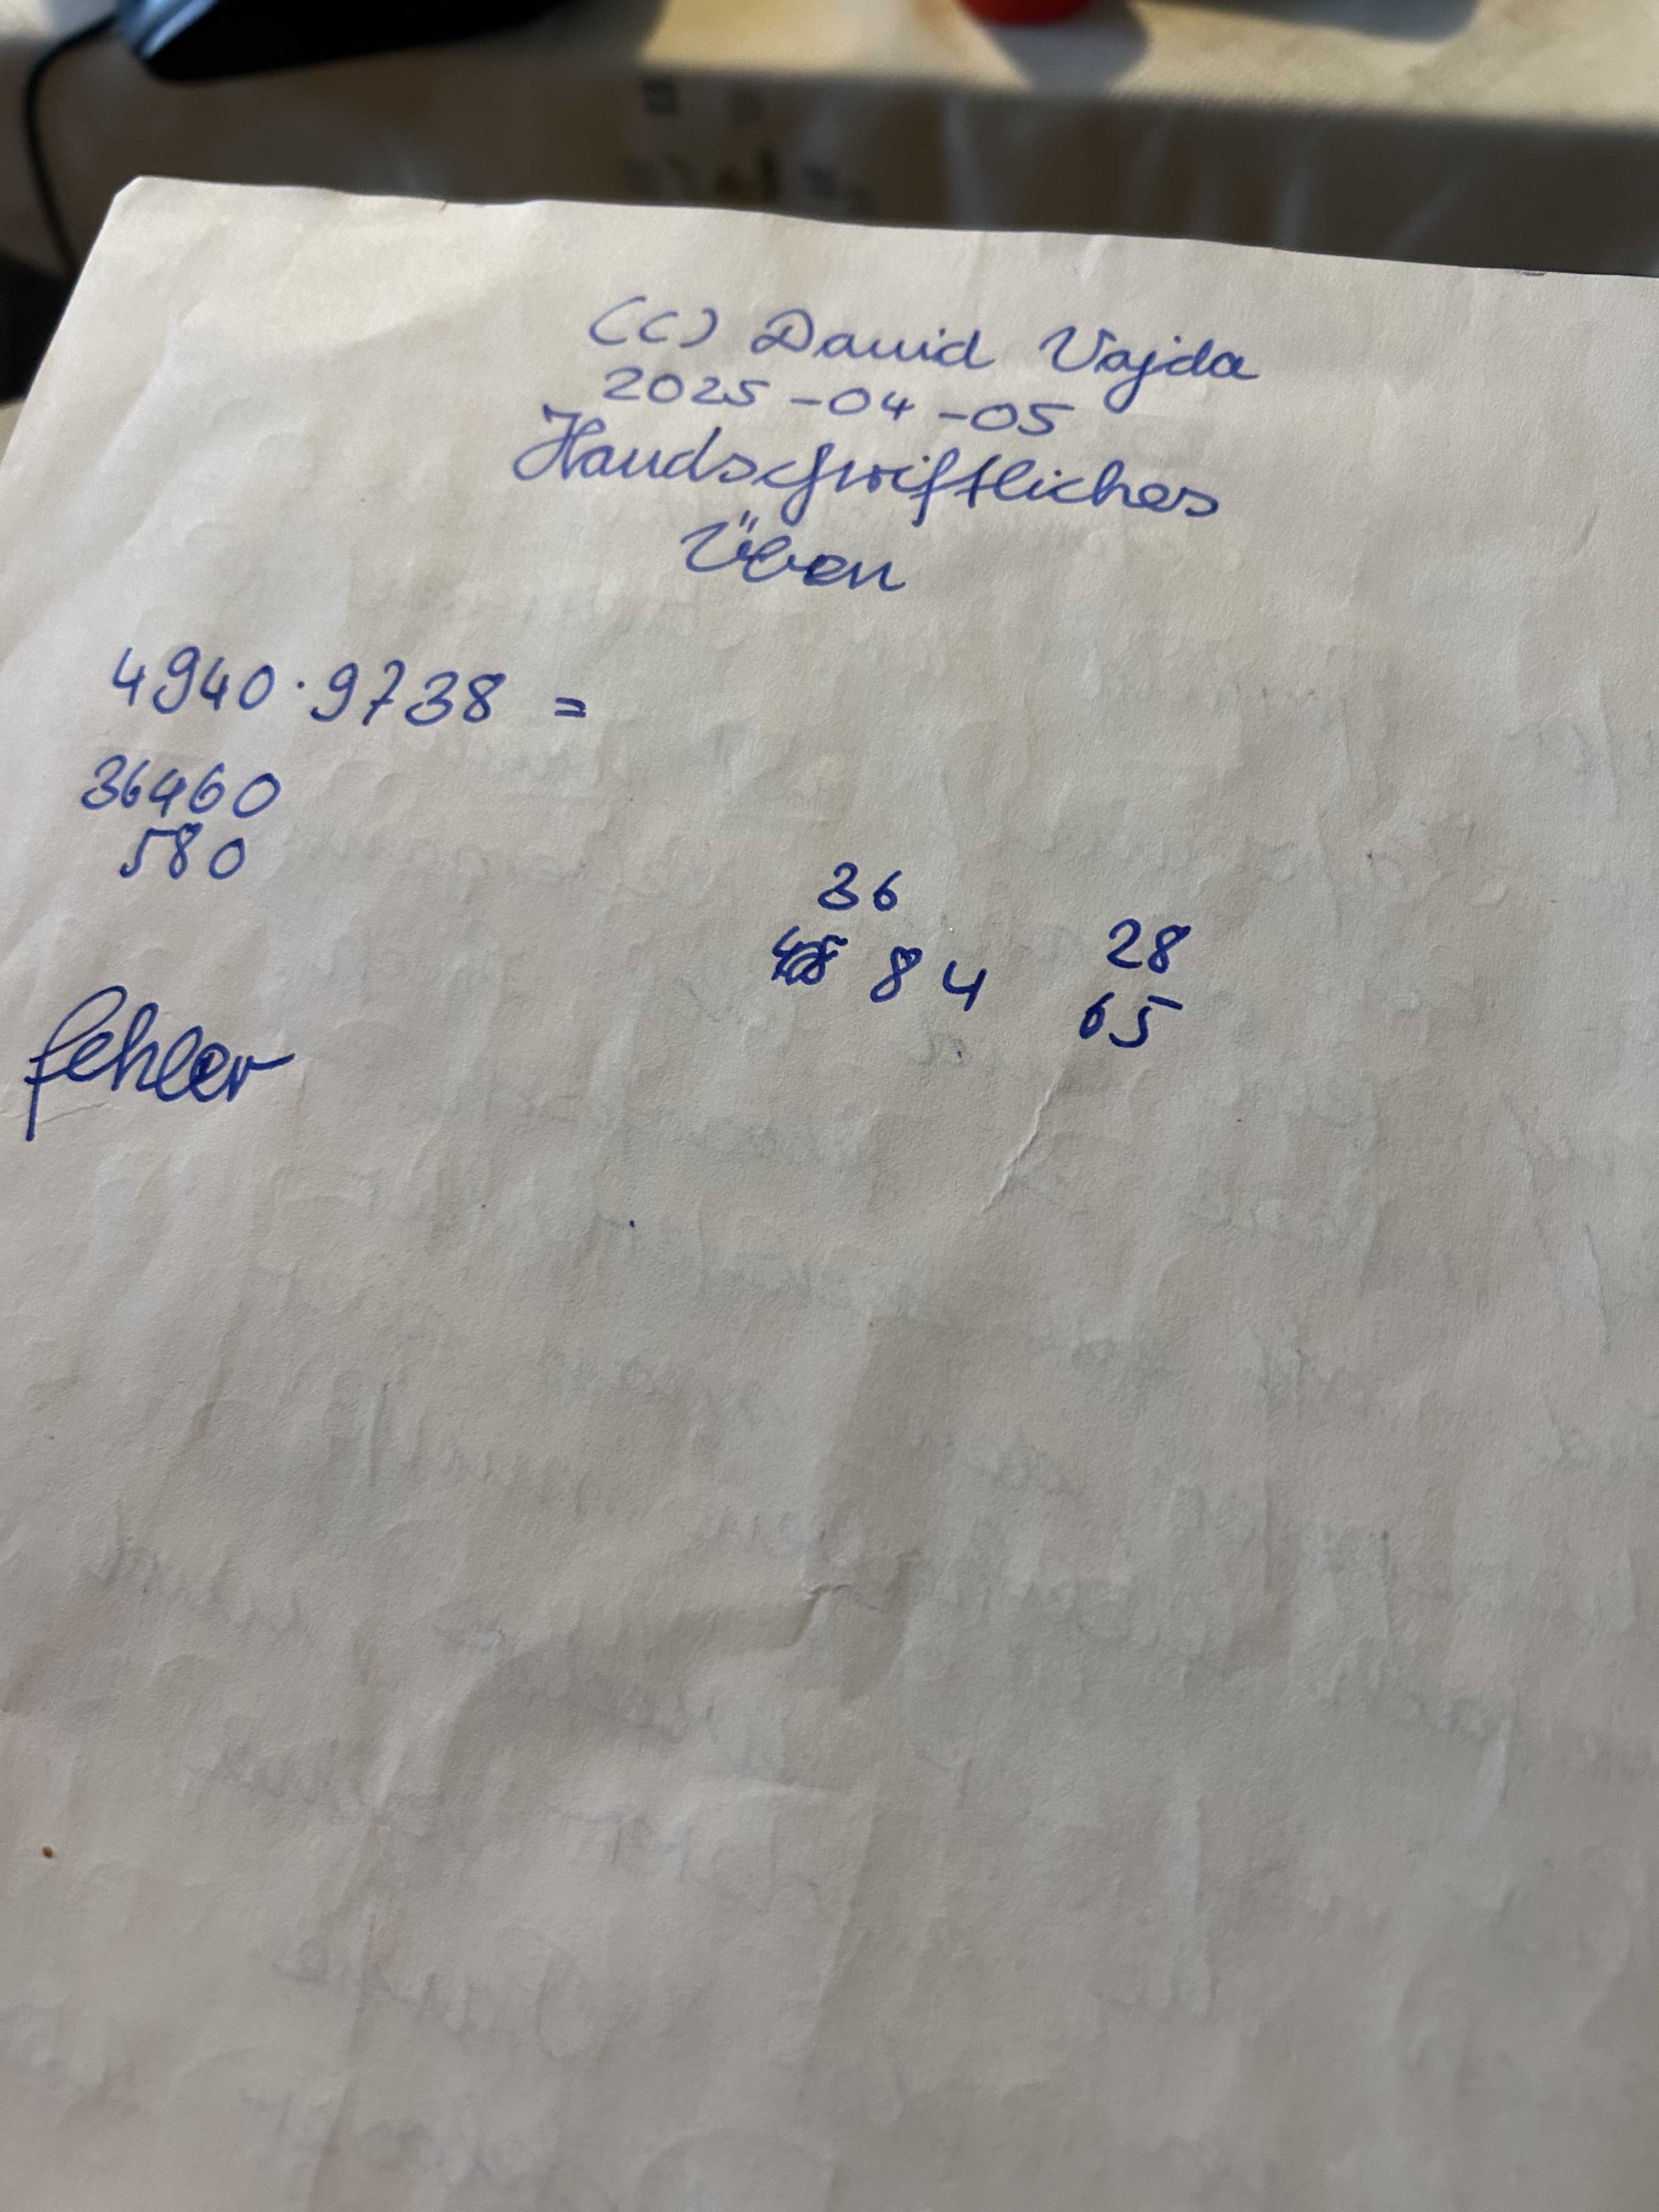 (c) David Vajda
2025-04-05
Handschriftliches
Üben
4940·9738 =
36460
580
36
84
28
65
fehler